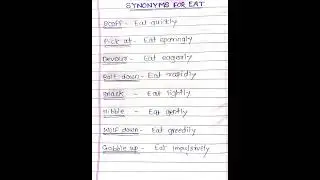 SYNONYMS FOR EAT
Scoff - Eat quickly
Pick at - Eat sparingly
Devour - Eat eagerly
Bolt down - Eat rapidly
Snack - Eat lightly
Nibble - Eat gently
Wolf down - Eat greedily
Gobble up - Eat impulsively